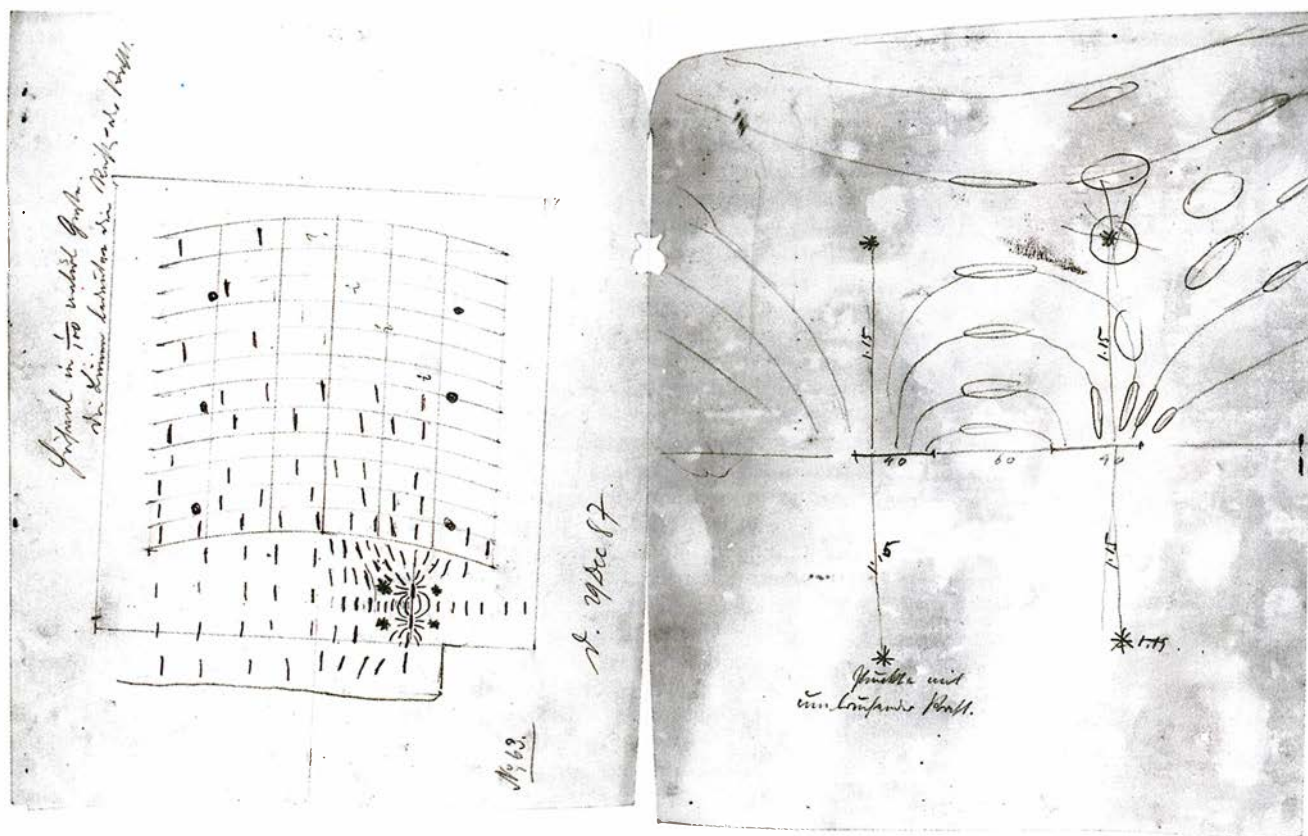 Hörsaal in 1/100 natürl Größe.
Die Linien bedeuten die Richt. der Kraft.
?
d. 29 Dec 87.
No, 63.
1.15
1.15
40 60 40
1.15
1.15
1.15.
Punkte mit
umlaufender Kraft.